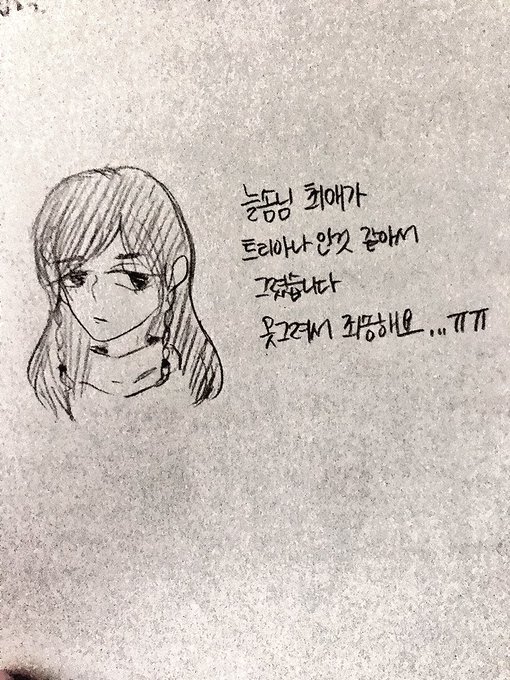 늘솜님 최애가
트리아나 인것 같아서
그렸습니다
못그려서 죄송해요...ㅠㅠ